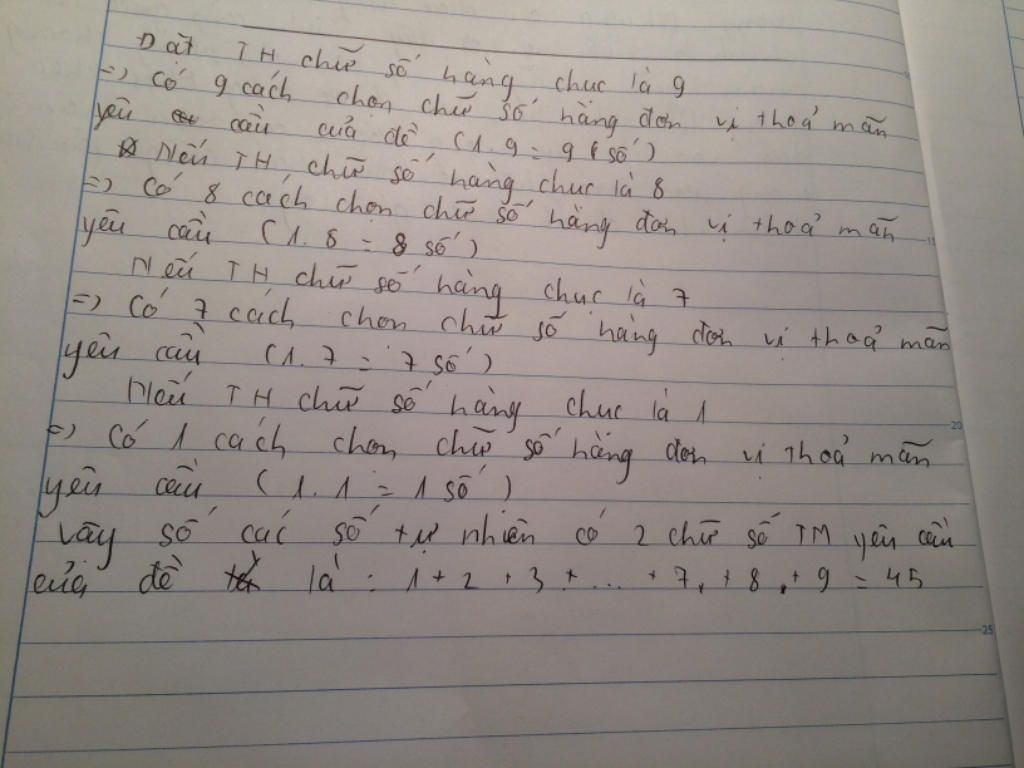 Đặt TH chữ số hàng chục là 9
=> có 9 cách chọn chữ số hàng đơn vị thoả mãn
yêu cầu của đề (1.9 = 9 (số)
Nếu TH chữ số hàng chục là 8
=> Có 8 cách chọn chữ số hàng đơn vị thoả mãn
yêu cầu (1.8 = 8 số)
Nếu TH chữ số hàng chục là 7
=> Có 7 cách chọn chữ số hàng đơn vị thoả mãn
yêu cầu (1.7 = 7 số)
Nếu TH chữ số hàng chục là 1
=> Có 1 cách chọn chữ số hàng đơn vị thoả mãn
yêu cầu (1.1 = 1 số)
Vậy số các số tự nhiên có 2 chữ số TM yêu cầu
của đề là : 1 + 2 + 3 + ... + 7 + 8 + 9 = 45
15
20
25